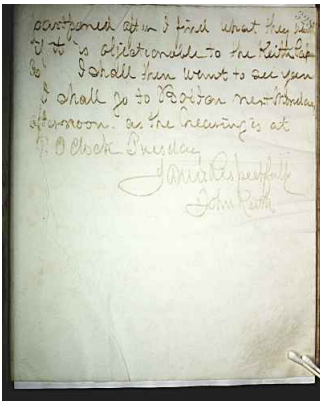 postponed after I find what they want
if it is objectionable to the Keith Paper
Co I shall then want to see you
I shall go to Boston next Monday
afternoon. as the hearing is at
O Clock Tuesday
Yours Respectfully
John Keith